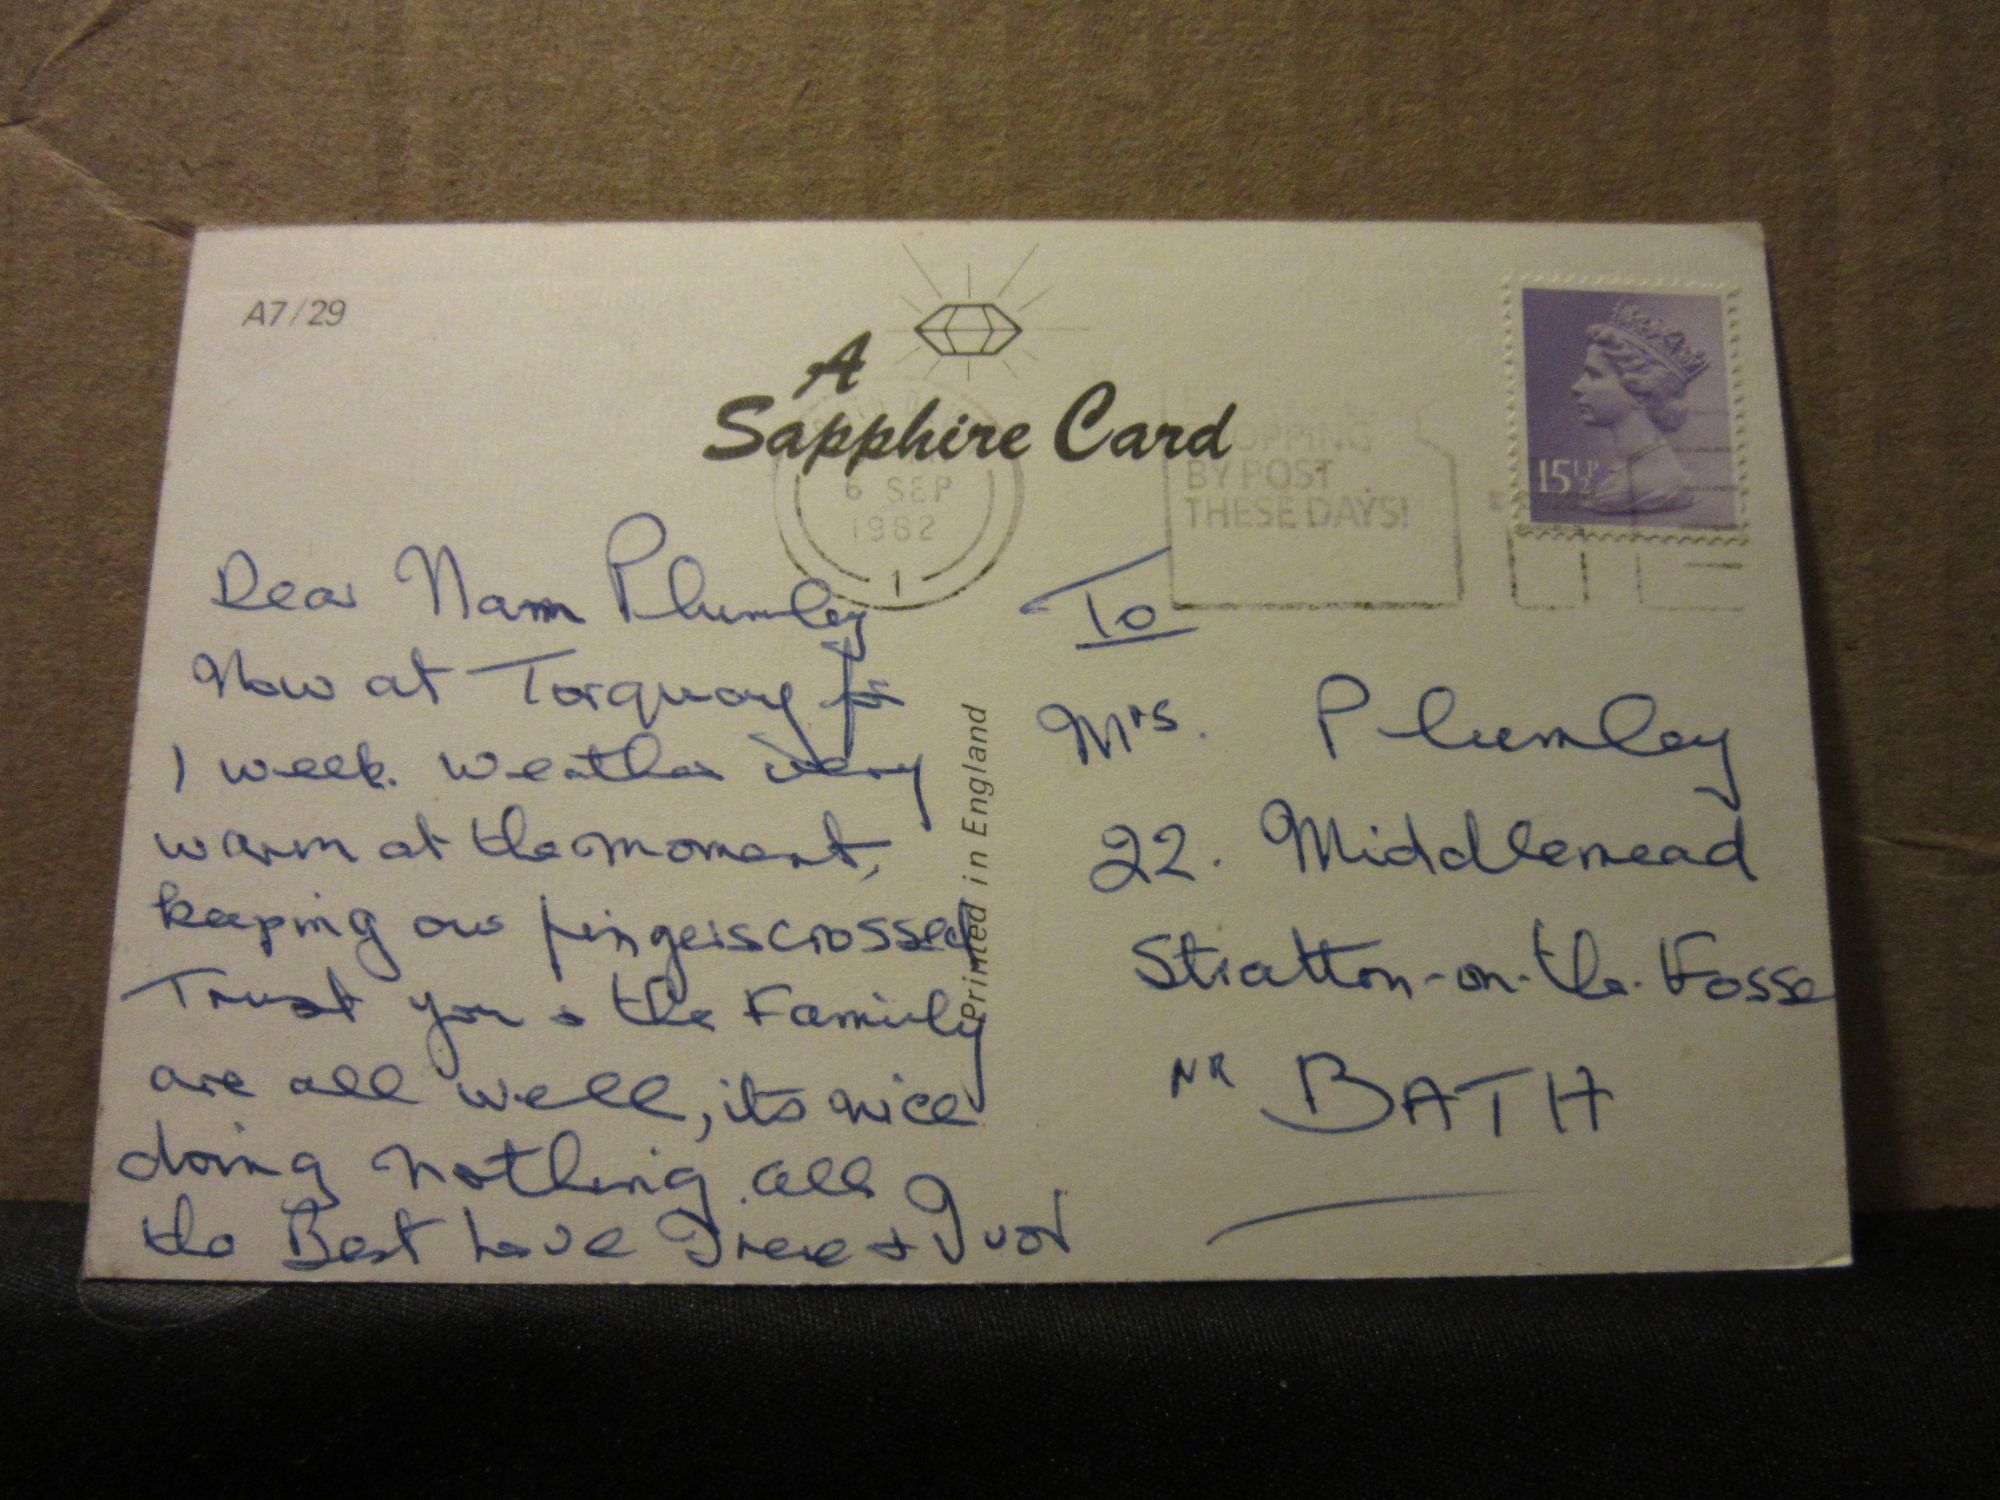 A7/29
A
Sapphire Card
6 SEP
1982
1
OPPING
BY POST
THESE DAYS!
15½P
Dear Nam Plumley
Now at Torquay for
1 week. Weather very
warm at the moment,
keeping our fingers crossed
Trust you & the Family
are all well, its nice
doing nothing. all
the Best Love Irene & Ivor
Printed in England
To
Mrs. Plumley
22. Middlemead
Stratton-on-the-Fosse
NR BATH